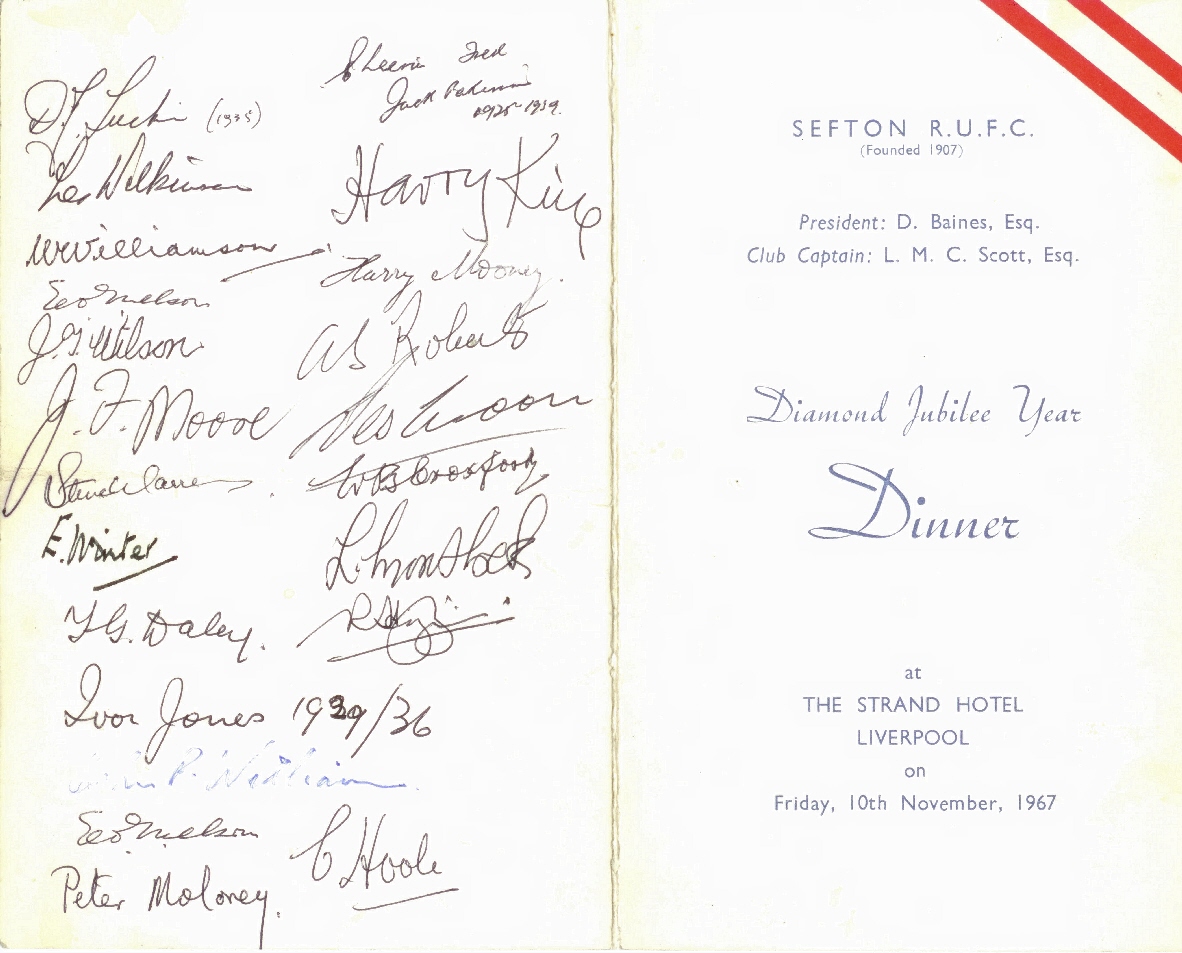 D.J. Luckin (1935)
Les Wilkinson
W Williamson
Geo Nelson
J. G. Wilson
J. F. Moore
E. Winter
T G. Daley.
Ivor Jones 1929/36
P. William
Geo Nelson
Peter Moloney.
Cheerio Fred
Jack
1925-1939.
Harry King
Harry Mooney.
A S Roberts
Des Moon
W B Croxford
C Hoole
SEFTON R.U.F.C.
(Founded 1907)
President: D. Baines, Esq.
Club Captain: L. M. C. Scott, Esq.
Diamond Jubilee Year
Dinner
at
THE STRAND HOTEL
LIVERPOOL
on
Friday, 10th November, 1967